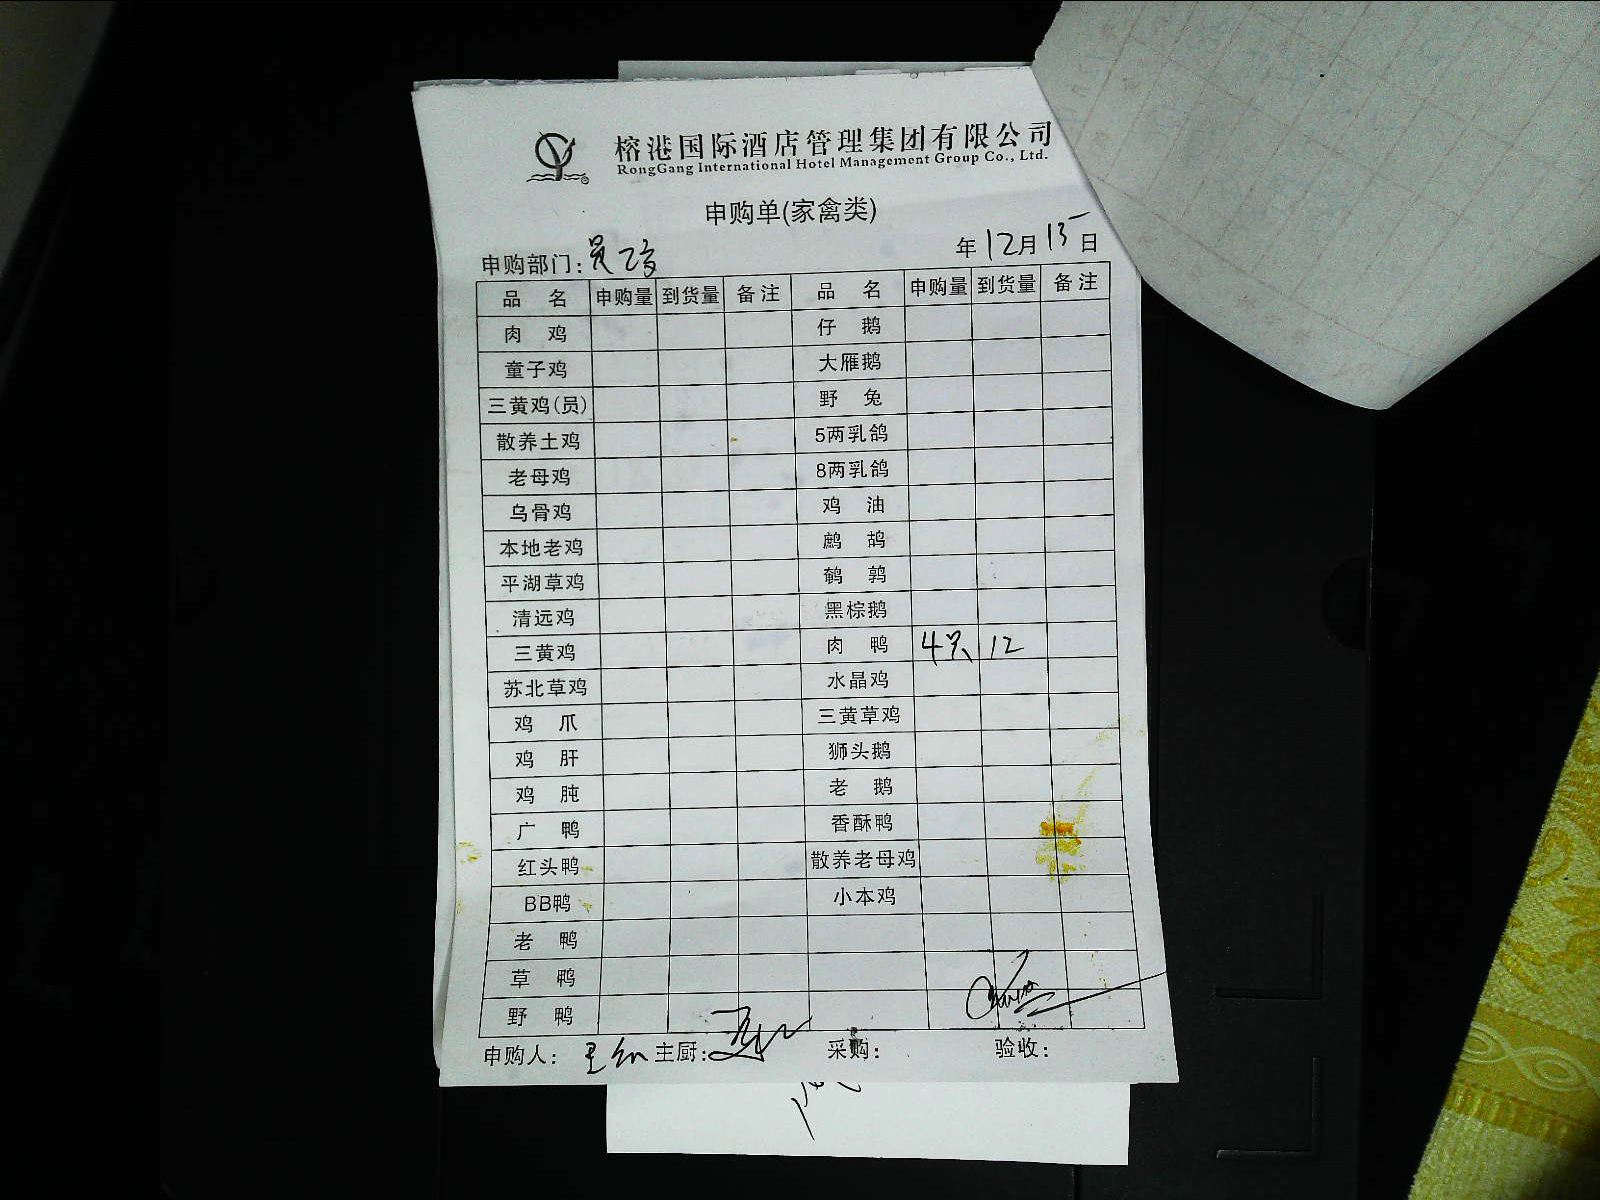 榕港国际酒店管理集团有限公司
RongGang International Hotel Management Group Co., Ltd.
申购单(家禽类)
申购部门: 年12月15日
品名 申购量 到货量 备注 品名 申购量 到货量 备注
肉鸡 仔鹅
童子鸡 大雁鹅
三黄鸡(员) 野兔
散养土鸡 5两乳鸽
老母鸡 8两乳鸽
乌骨鸡 鸡油
本地老鸡 鹧鸪
平湖草鸡 鹌鹑
清远鸡 黑棕鹅
三黄鸡 肉鸭 4只 12
苏北草鸡 水晶鸡
鸡爪 三黄草鸡
鸡肝 狮头鹅
鸡肫 老鹅
广鸭 香酥鸭
红头鸭 散养老母鸡
BB鸭 小本鸡
老鸭
草鸭
野鸭
申购人: 主厨: 采购: 验收: